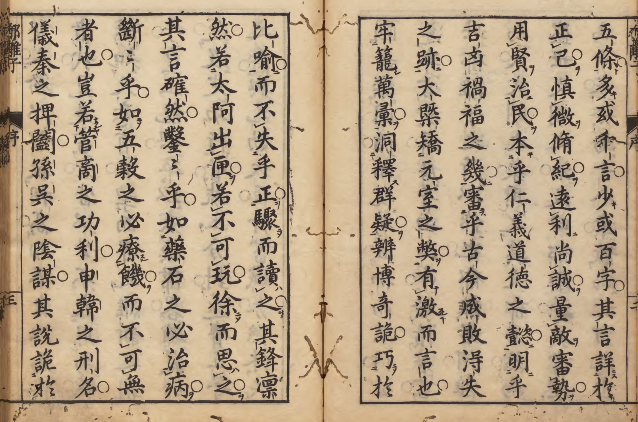 五條多或千言少或百字其言詳於
正己慎微脩紀遠利尚誠量敵審勢
用賢治民本乎仁義道德之懿明乎
吉凶禍福之幾審乎古今成敗得失
之跡大槩矯元室之弊有激而言也
牢籠萬彙洞釋群疑辨博奇詭巧於
比喻而不失乎正驟而讀之其鋒凛
然若太阿出匣若不可玩徐而思之
其言確然鑿〻乎如藥石之必治病
斷〻乎如五穀之必療饑而不可無
者也豈若管商之功利申韓之刑名
儀秦之捭闔孫吳之陰謀其說詭於
郁離子
序
三